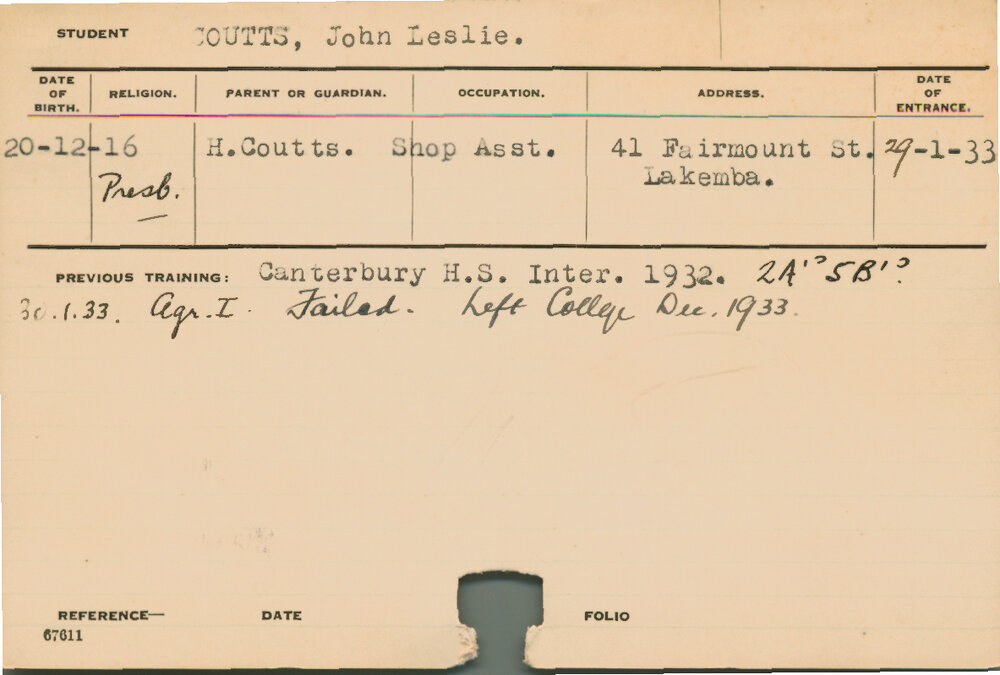 STUDENT COUTTS, John Leslie.
DATE OF BIRTH. RELIGION. PARENT OR GUARDIAN. OCCUPATION. ADDRESS. DATE OF ENTRANCE.
20-12-16 H.Coutts. Shop Asst. 41 Fairmount St. 29-1-33
Presb. Lakemba.
PREVIOUS TRAINING: Canterbury H.S. Inter. 1932. 2A's 5B's.
30.1.33. Agr. I. Failed. Left College Dec. 1933.
REFERENCE— DATE FOLIO
67611